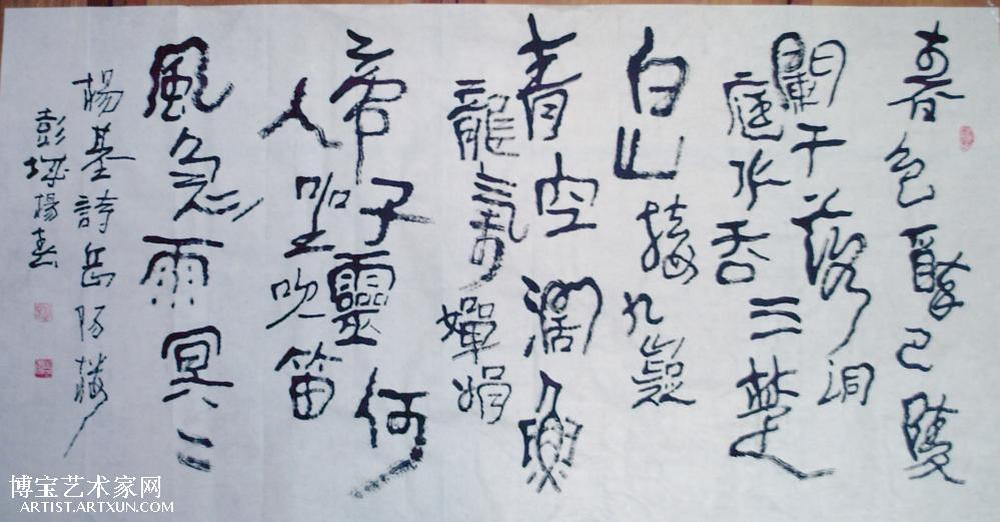 春色醉巴陵
闌干落洞
庭水吞三楚
白山接九嶷
青空濶魚
龍氣嬋娟
帝子靈何
人坐吹笛
風急雨冥〻
楊基詩岳陽樓
彭城楊
博宝艺术家网
ARTIST.ARTXUN.COM